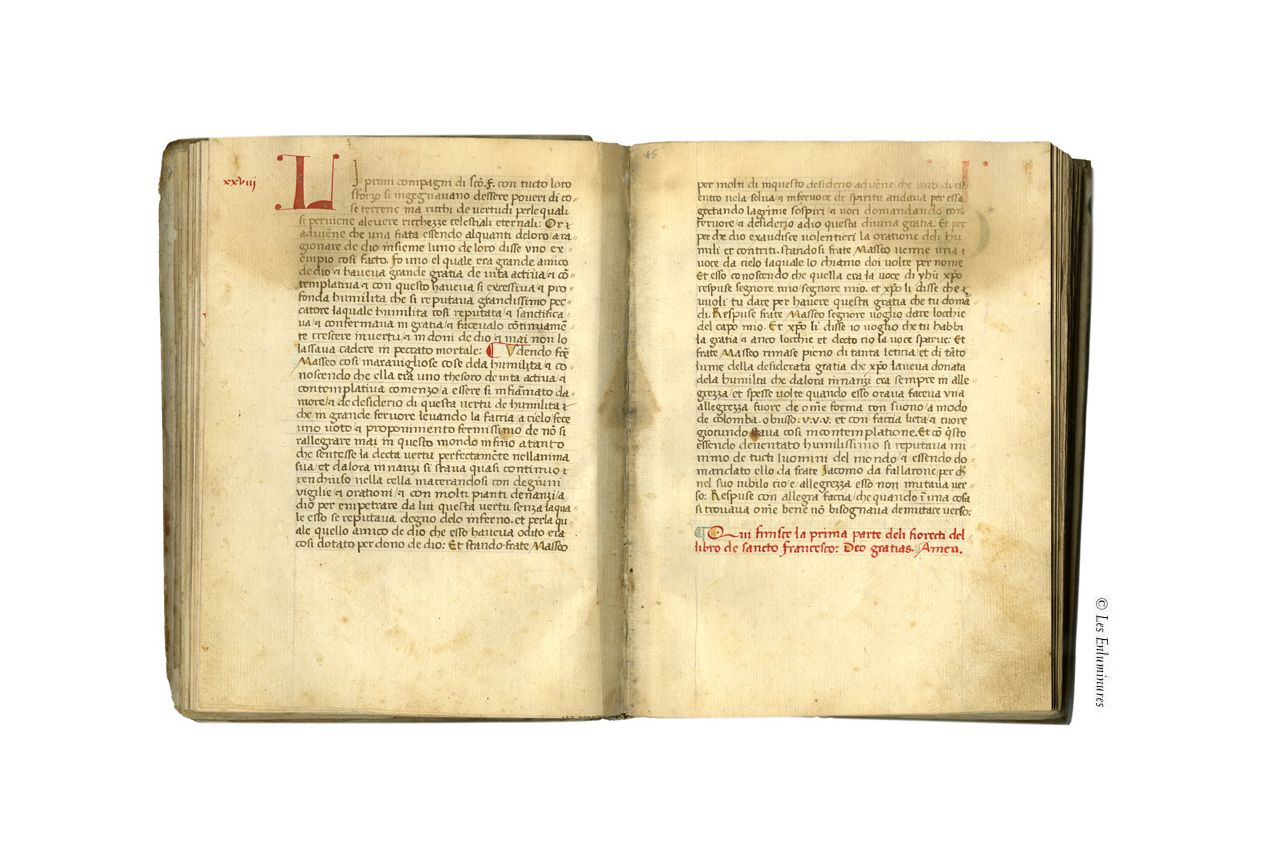 xxviii
LI primi compagni di sco. F. con tucto loro
sforzo si ingegnavano dessere poveri di co-
se terrene ma ricchi de vertudi perlequali
si perviene alevere ricchezze celestiali eternali: Or
adviene che una fiata essendo alquanti deloro a ra-
gionare de dio insieme luno de loro disse uno ex-
empio cosi facto. Fo uno el quale era grande amico
de dio et haveva grande gratia de vita activa et co-
templativa et con questo haveva si excessiva et pro-
fonda humilita che si reputava grandissimo pec-
catore laquale humilita cosi reputata et sanctifica-
va et confermava in gratia et facevalo continuame-
te crescere invertu et in doni de dio et mai non lo
lassava cadere in peccato mortale: Vdendo fre
Masseo cosi maravigliose cose dela humilita et co-
noscendo che ella era uno thesoro de vita activa et
contemplativa comenzo a essere si infiamato da
more et de desiderio di questa vertu de humilita
che in grande fervore levando la faccia a cielo fece
uno voto et proponimento fermissimo de no si
rallegrare mai in questo mondo infino a tanto
che sentesse la decta vertu perfectamente nellanima
sua et dalora innanzi si stava quasi continuo
renchiuso nella cella macerandosi con degiuni
vigilie et orationi et con molti pianti denanzi a
dio per empetrare da lui questa vertu senza laqua-
le esso se reputava degno delo inferno. et perla qu-
ale quello amico de dio che esso haveva odito era
cosi dotato per dono de dio: Et stando frate Masseo
45
per molti di inquesto desiderio adviene che uno di
entro nela selva et infervore de spiritu andava per essa
gectando lagrime sospiri et voci domandando con
fervore et desiderio adio questa divina gratia. Et per
per che dio exaudisce volentieri la oratione deli hu
mili et contriti. standosi frate Masseo venne una
voce da cielo laquale lo chiamo doi volte per nome
Et esso conoscendo che quella era la voce di yhu xpo
respuse segnore mio segnore mio. et xpo li disse che
vuoli tu dare per havere questa gratia che tu doma
di. Respuse frate Masseo segnore voglio dare locchie
del capo mio. Et xpo li disse io voglio che tu habbi
la gratia et anco locchie et decto cio la voce sparve: Et
frate Masseo rimase pieno di tanta leticia et di tato
lume della desiderata gratia che xpo laveva donata
dela humilta che dalora innanzi era sempre in alle
grezza et spesse volte quando esso orava faceva vna
allegrezza fuore de ome forma con suono a modo
de colomba. obusso. v.v.v. et con faccia lieta et cuore
giocundo stava cosi in contemplatione. Et co qsto
essendo deventato humilissimo si reputava mi
nimo de tucti luomini del mondo et essendo do
mandato ello da frate Jacomo da fallarone per ch
nel suo iubilo cio e allegrezza esso non mutava ver
so: Respuse con allegra faccia che quando i una cosa
si trovava ome bene no bisognava de mutare verso:
Qui finisce la prima parte deli fiorecti del
libro de sancto Francesco: Deo gratias. Amen.
© Les Enluminures